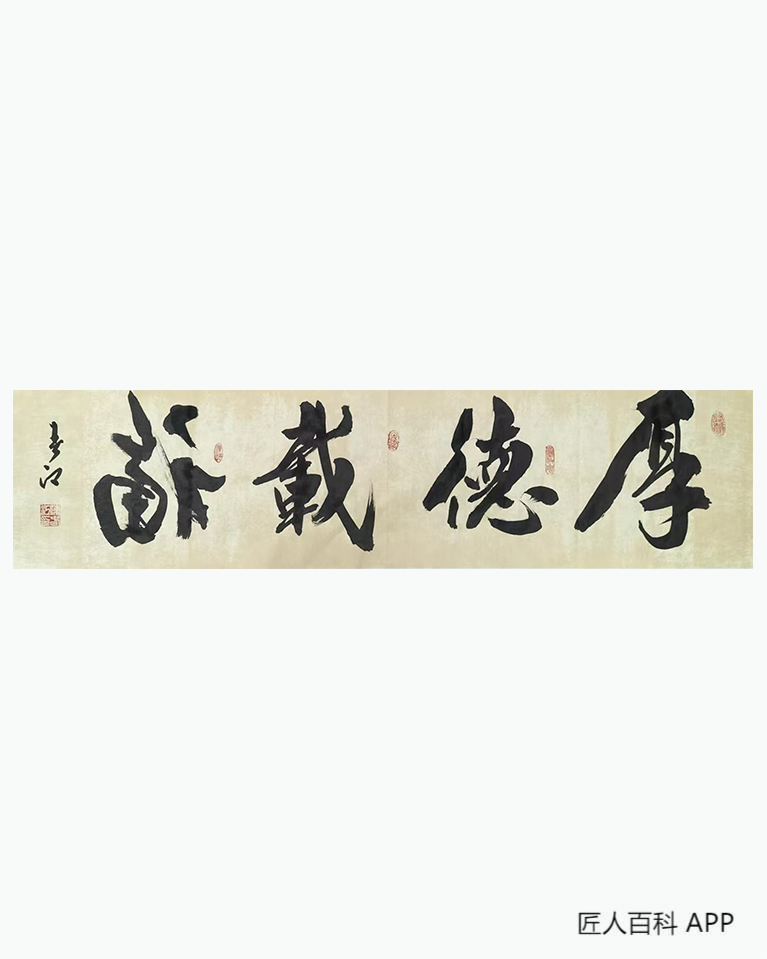 厚德載
春江
匠人百科 APP